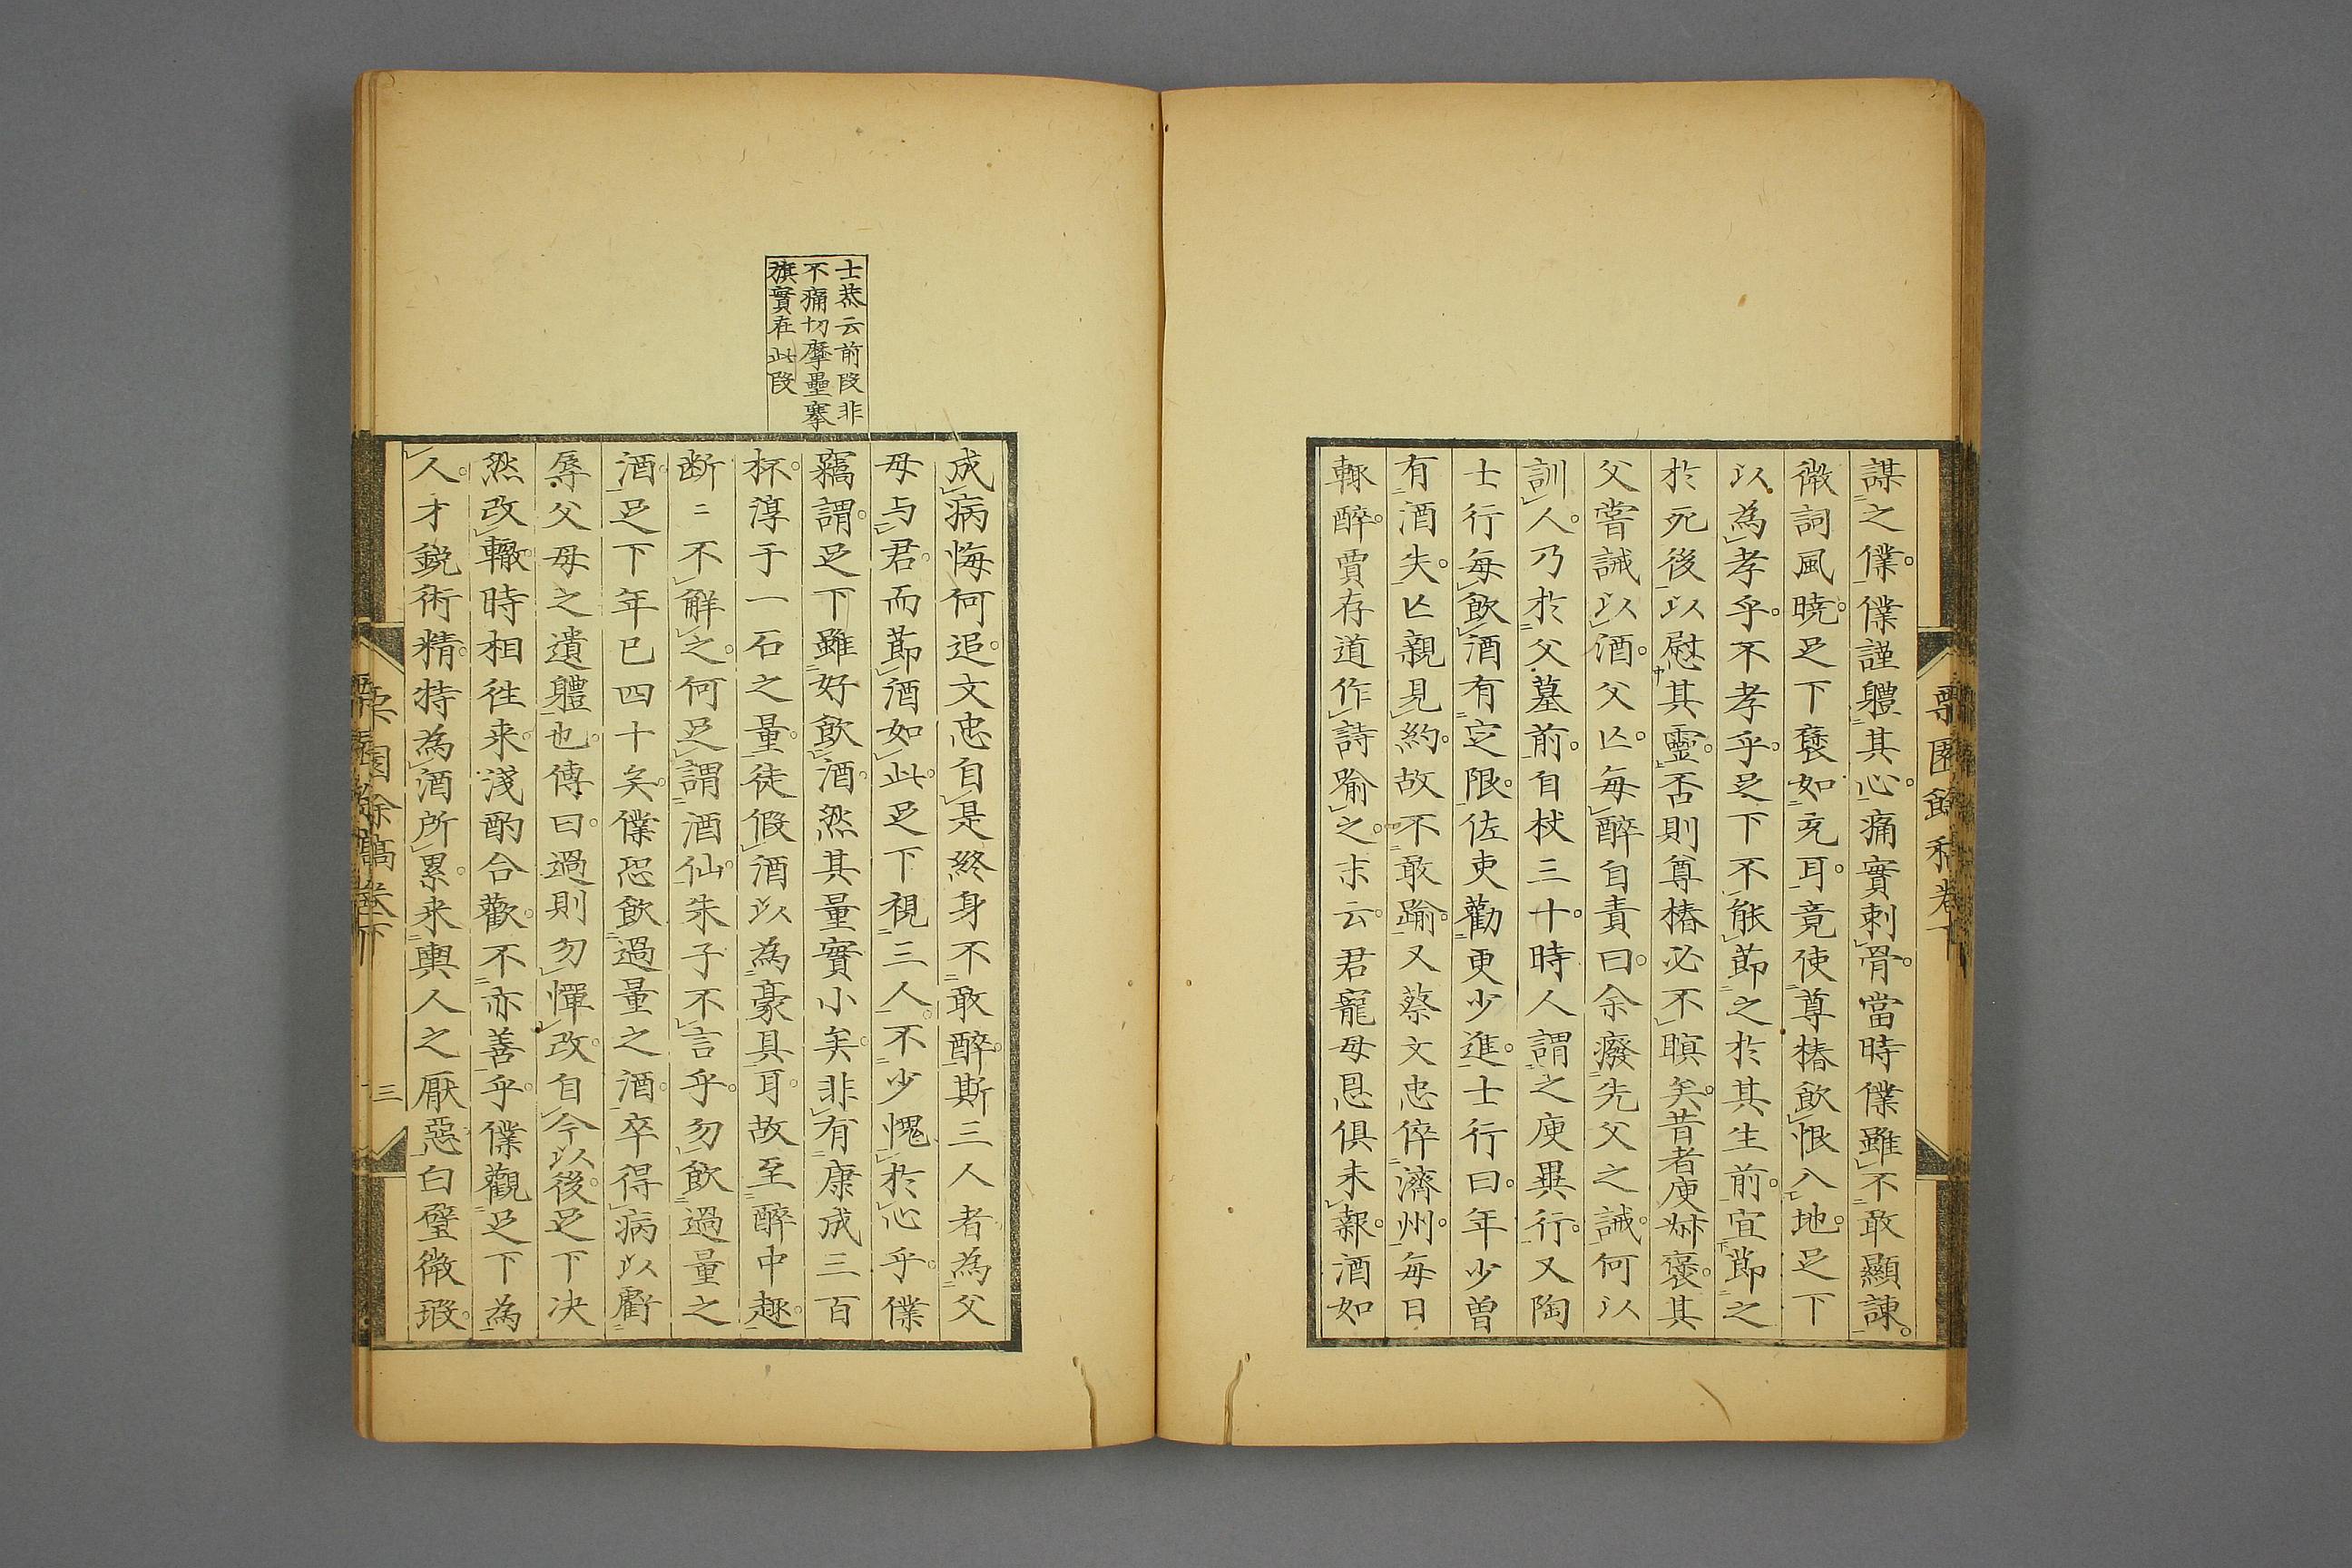 謀之僕僕謹軆其心痛實刺骨當時僕雖不敢顯諌
微詞風曉足下褎如充耳竟使尊椿飲恨入地足下
以為孝乎不孝乎足下不能莭之於其生前宜莭之
於死後以慰其靈否則尊椿必不瞑矣昔者庾叔褎其
父嘗誡以酒父亾每醉自責曰余癈先父之誡何以
訓人乃於父墓前自杖三十時人謂之庾異行又陶
士行每飲酒有定限佐吏勸更少進士行曰年少曽
有酒失亾親見約故不敢踰又蔡文忠倅濟州每日
輙醉賈存道作詩喻之末云君寵母恩俱未報酒如
成病悔何追文忠自是終身不敢醉斯三人者為父
母与君而莭酒如此足下視三人不少愧於心乎僕
竊謂足下雖好飲酒然其量實小矣非有康成三百
杯淳于一石之量徒假酒以為豪具耳故至醉中趣
断〻不解之何足謂酒仙朱子不言乎勿飲過量之
酒足下年已四十矣僕恐飲過量之酒卒得病以虧
辱父母之遺軆也傳曰過則勿憚改自今以後足下决
然改轍時相徃来淺酌合歡不亦善乎僕觀足下為
人才鋭術精特為酒所累来輿人之厭惡白璧微瑕
士恭云前段非
不痛切摩壘搴
旗實在此段
栗園餘稿卷下
三